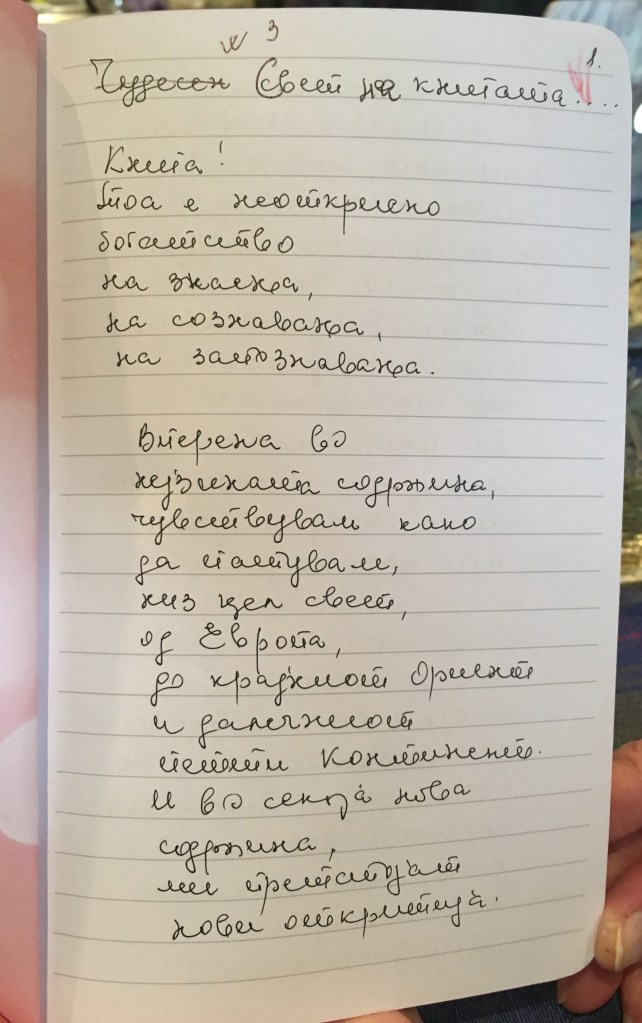 3
1.
Чудесен Свет на книгата....
Книга!
Тоа е неоткриено
богатство
на знаења,
на сознавања,
на запознавања.
Вперена во
нејзината содржина,
чувствувам како
да патувам,
низ цел свет,
од Европа,
до крајниот Ориент
и далечниот
петти Континент.
И во секоја нова
содржина,
ми претстојат
нови откритија.